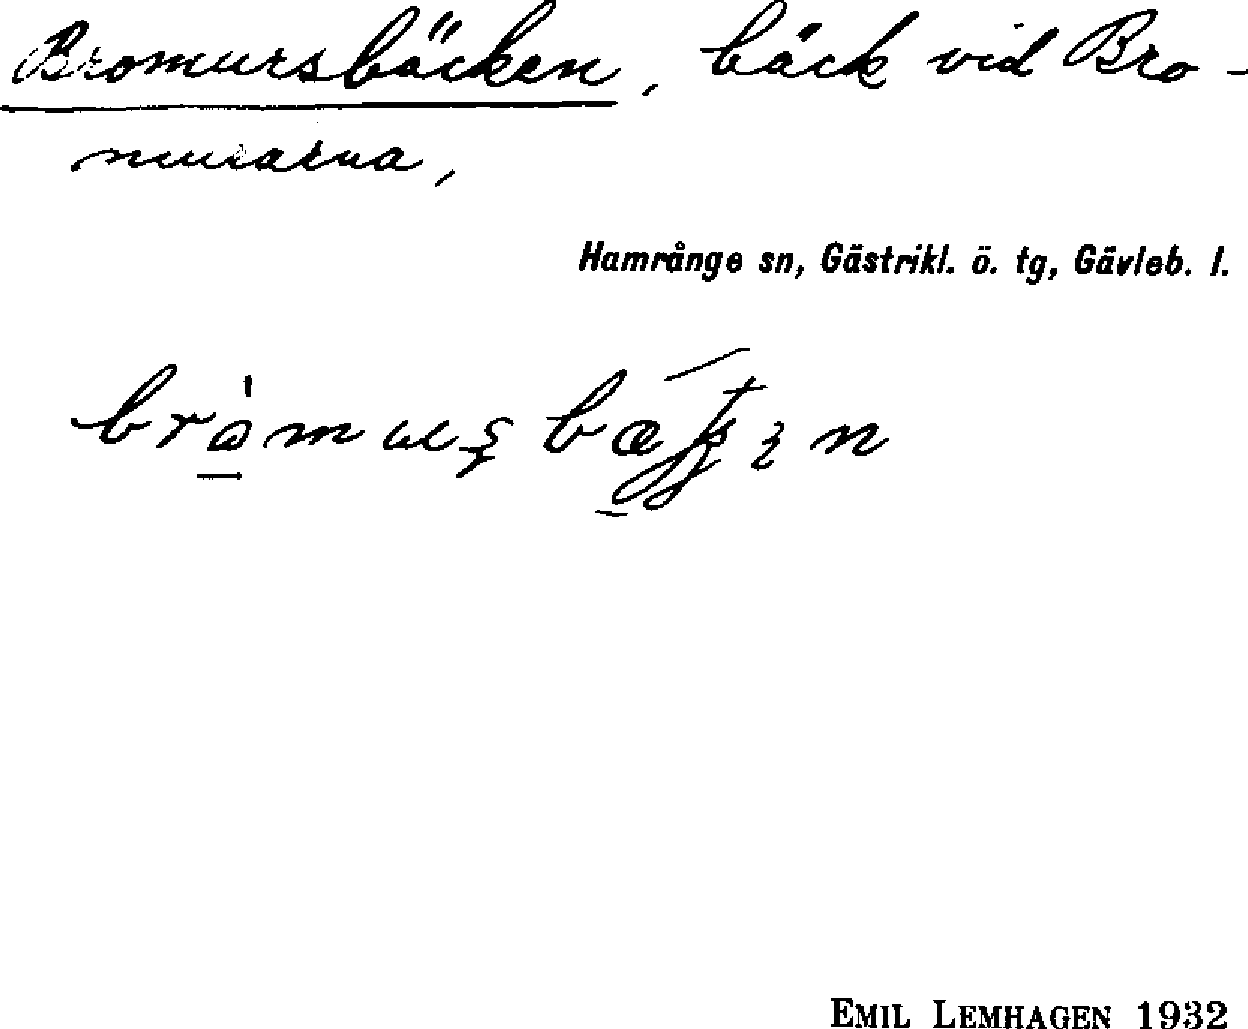 Bromursbäcken, bäck vid Bro-
murarna,
Hamrånge sn, Gästrikl. ö. tg, Gävleb. l.
EMIL LEMHAGEN 1932